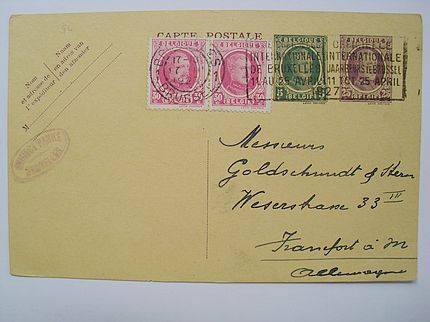 CARTE POSTALE
Nom
et adresse de
l'expéditeur
Naam
en adres van
den afzender
M
BELGIQUE BELGIQUE
BELGIË BELGIË
INTERNATIONALE INTERNATIONALE
DE BRUXELLES JAARBEURS TE BRUSSEL
AU 25 AVRIL 11 TOT 25 APRIL
1927
5 5
25 25
Messieurs
Goldschmidt & Herm
Weserstrasse 33 III
Francfort à M
Allemagne